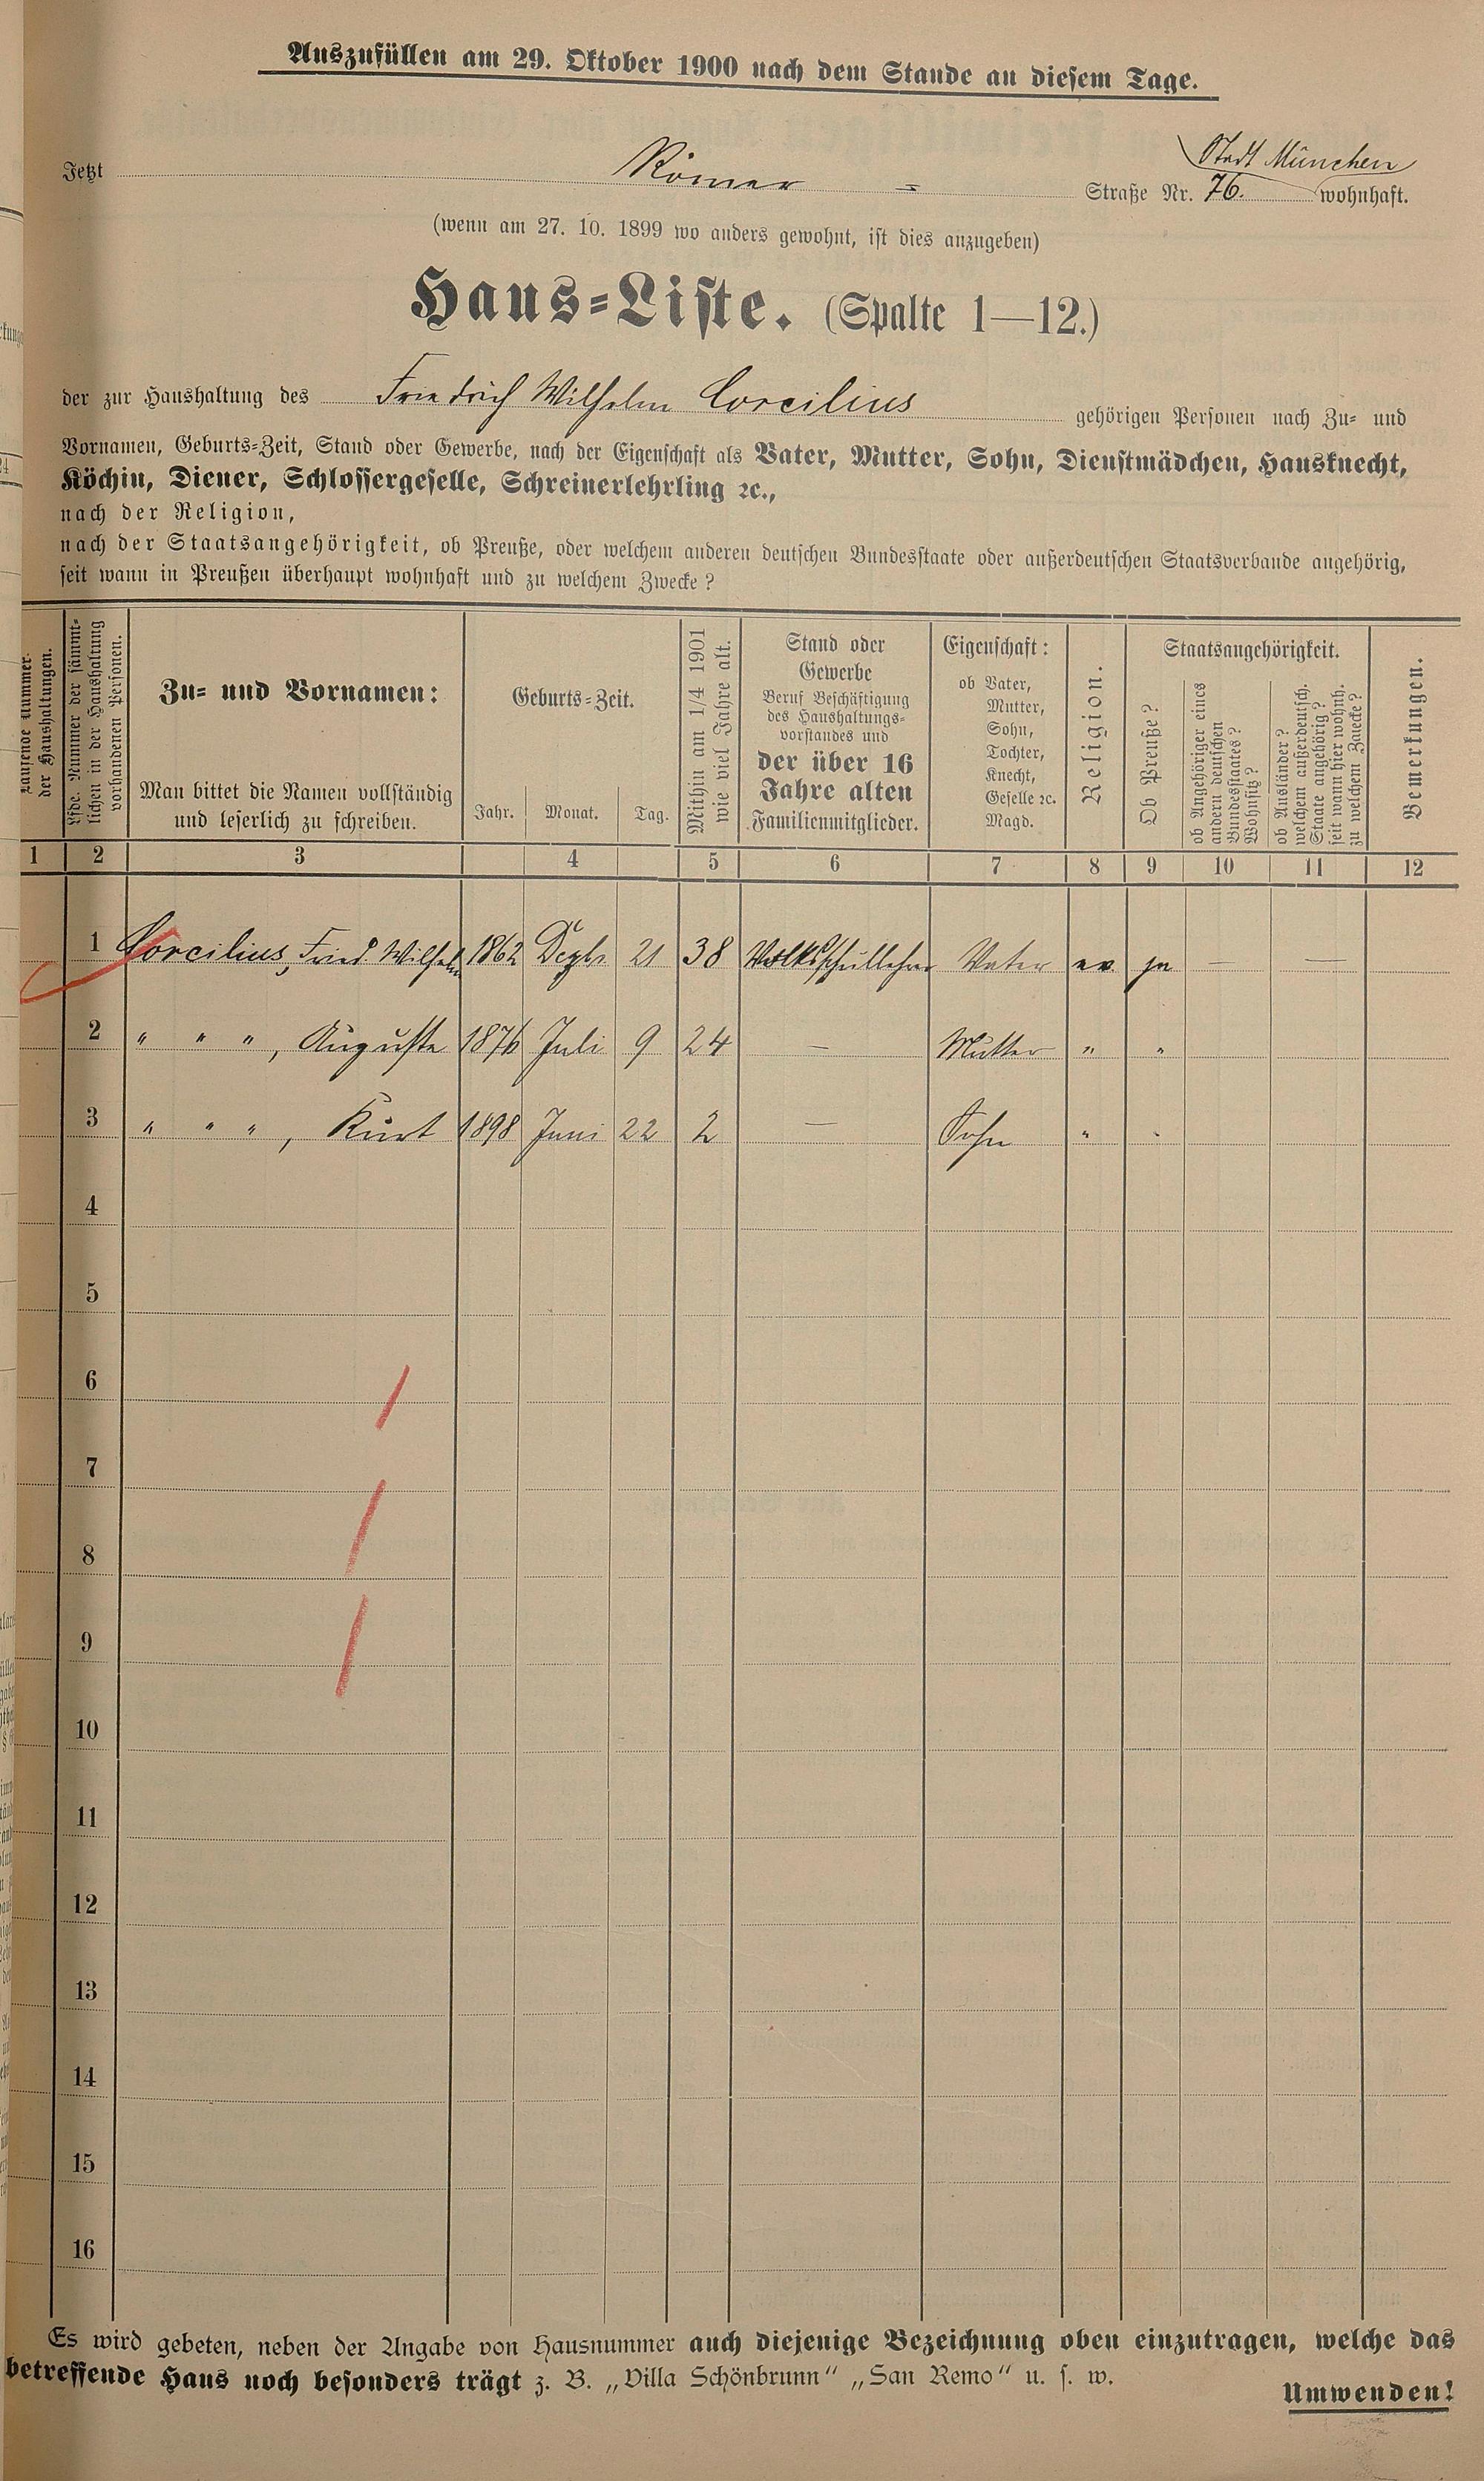 Auszufüllen am 29. Oktober 1900 nach dem Stande an diesem Tage.
Stadt München
Jetzt Römer = Straße Nr. 76. wohnhaft.
(wenn am 27. 10. 1899 wo anders gewohnt, ist dies anzugeben)
Haus=Liste. (Spalte 1—12.)
der zur Haushaltung des Friedrich Wilhelm Corcilius gehörigen Personen nach Zu= und
Vornamen, Geburts=Zeit, Stand oder Gewerbe, nach der Eigenschaft als Vater, Mutter, Sohn, Dienstmädchen, Hausknecht,
Köchin, Diener, Schlossergeselle, Schreinerlehrling ꝛc.,
nach der Religion,
nach der Staatsangehörigkeit, ob Preuße, oder welchem anderen deutschen Bundesstaate oder außerdeutschen Staatsverbande angehörig,
seit wann in Preußen überhaupt wohnhaft und zu welchem Zwecke?
Laufende Nummer
der Haushaltungen.
Lfde. Nummer der sämmt=
lichen in der Haushaltung
vorhandenen Personen.
Zu= und Vornamen:
Man bittet die Namen vollständig
und leserlich zu schreiben.
Geburts=Zeit.
Jahr. Monat. Tag.
Mithin am 1/4 1901
wie viel Jahre alt.
Stand oder
Gewerbe
Beruf Beschäftigung
des Haushaltungs=
vorstandes und
der über 16
Jahre alten
Familienmitglieder.
Eigenschaft:
ob Vater,
Mutter,
Sohn,
Tochter,
Knecht,
Geselle ꝛc.
Magd.
Religion.
Staatsangehörigkeit.
Ob Preuße?
ob Angehöriger eines
andern deutschen
Bundesstaates?
Wohnsitz?
ob Ausländer?
welchem außerdeutsch.
Staate angehörig?
seit wann hier wohnh.
zu welchem Zwecke?
Bemerkungen.
1 2 3 4 5 6 7 8 9 10 11 12
1 Corcilius, Fried. Wilhelm 1862 Dezbr 21 38 Volksschullehrer Vater ev ja — —
2 " " ", Auguste 1876 Juli 9 24 — Mutter " "
3 " " ", Kurt 1898 Juni 22 2 — Sohn " "
4
5
6
7
8
9
10
11
12
13
14
15
16
Es wird gebeten, neben der Angabe von Hausnummer auch diejenige Bezeichnung oben einzutragen, welche das
betreffende Haus noch besonders trägt z. B. „Villa Schönbrunn“ „San Remo“ u. s. w.
Umwenden!